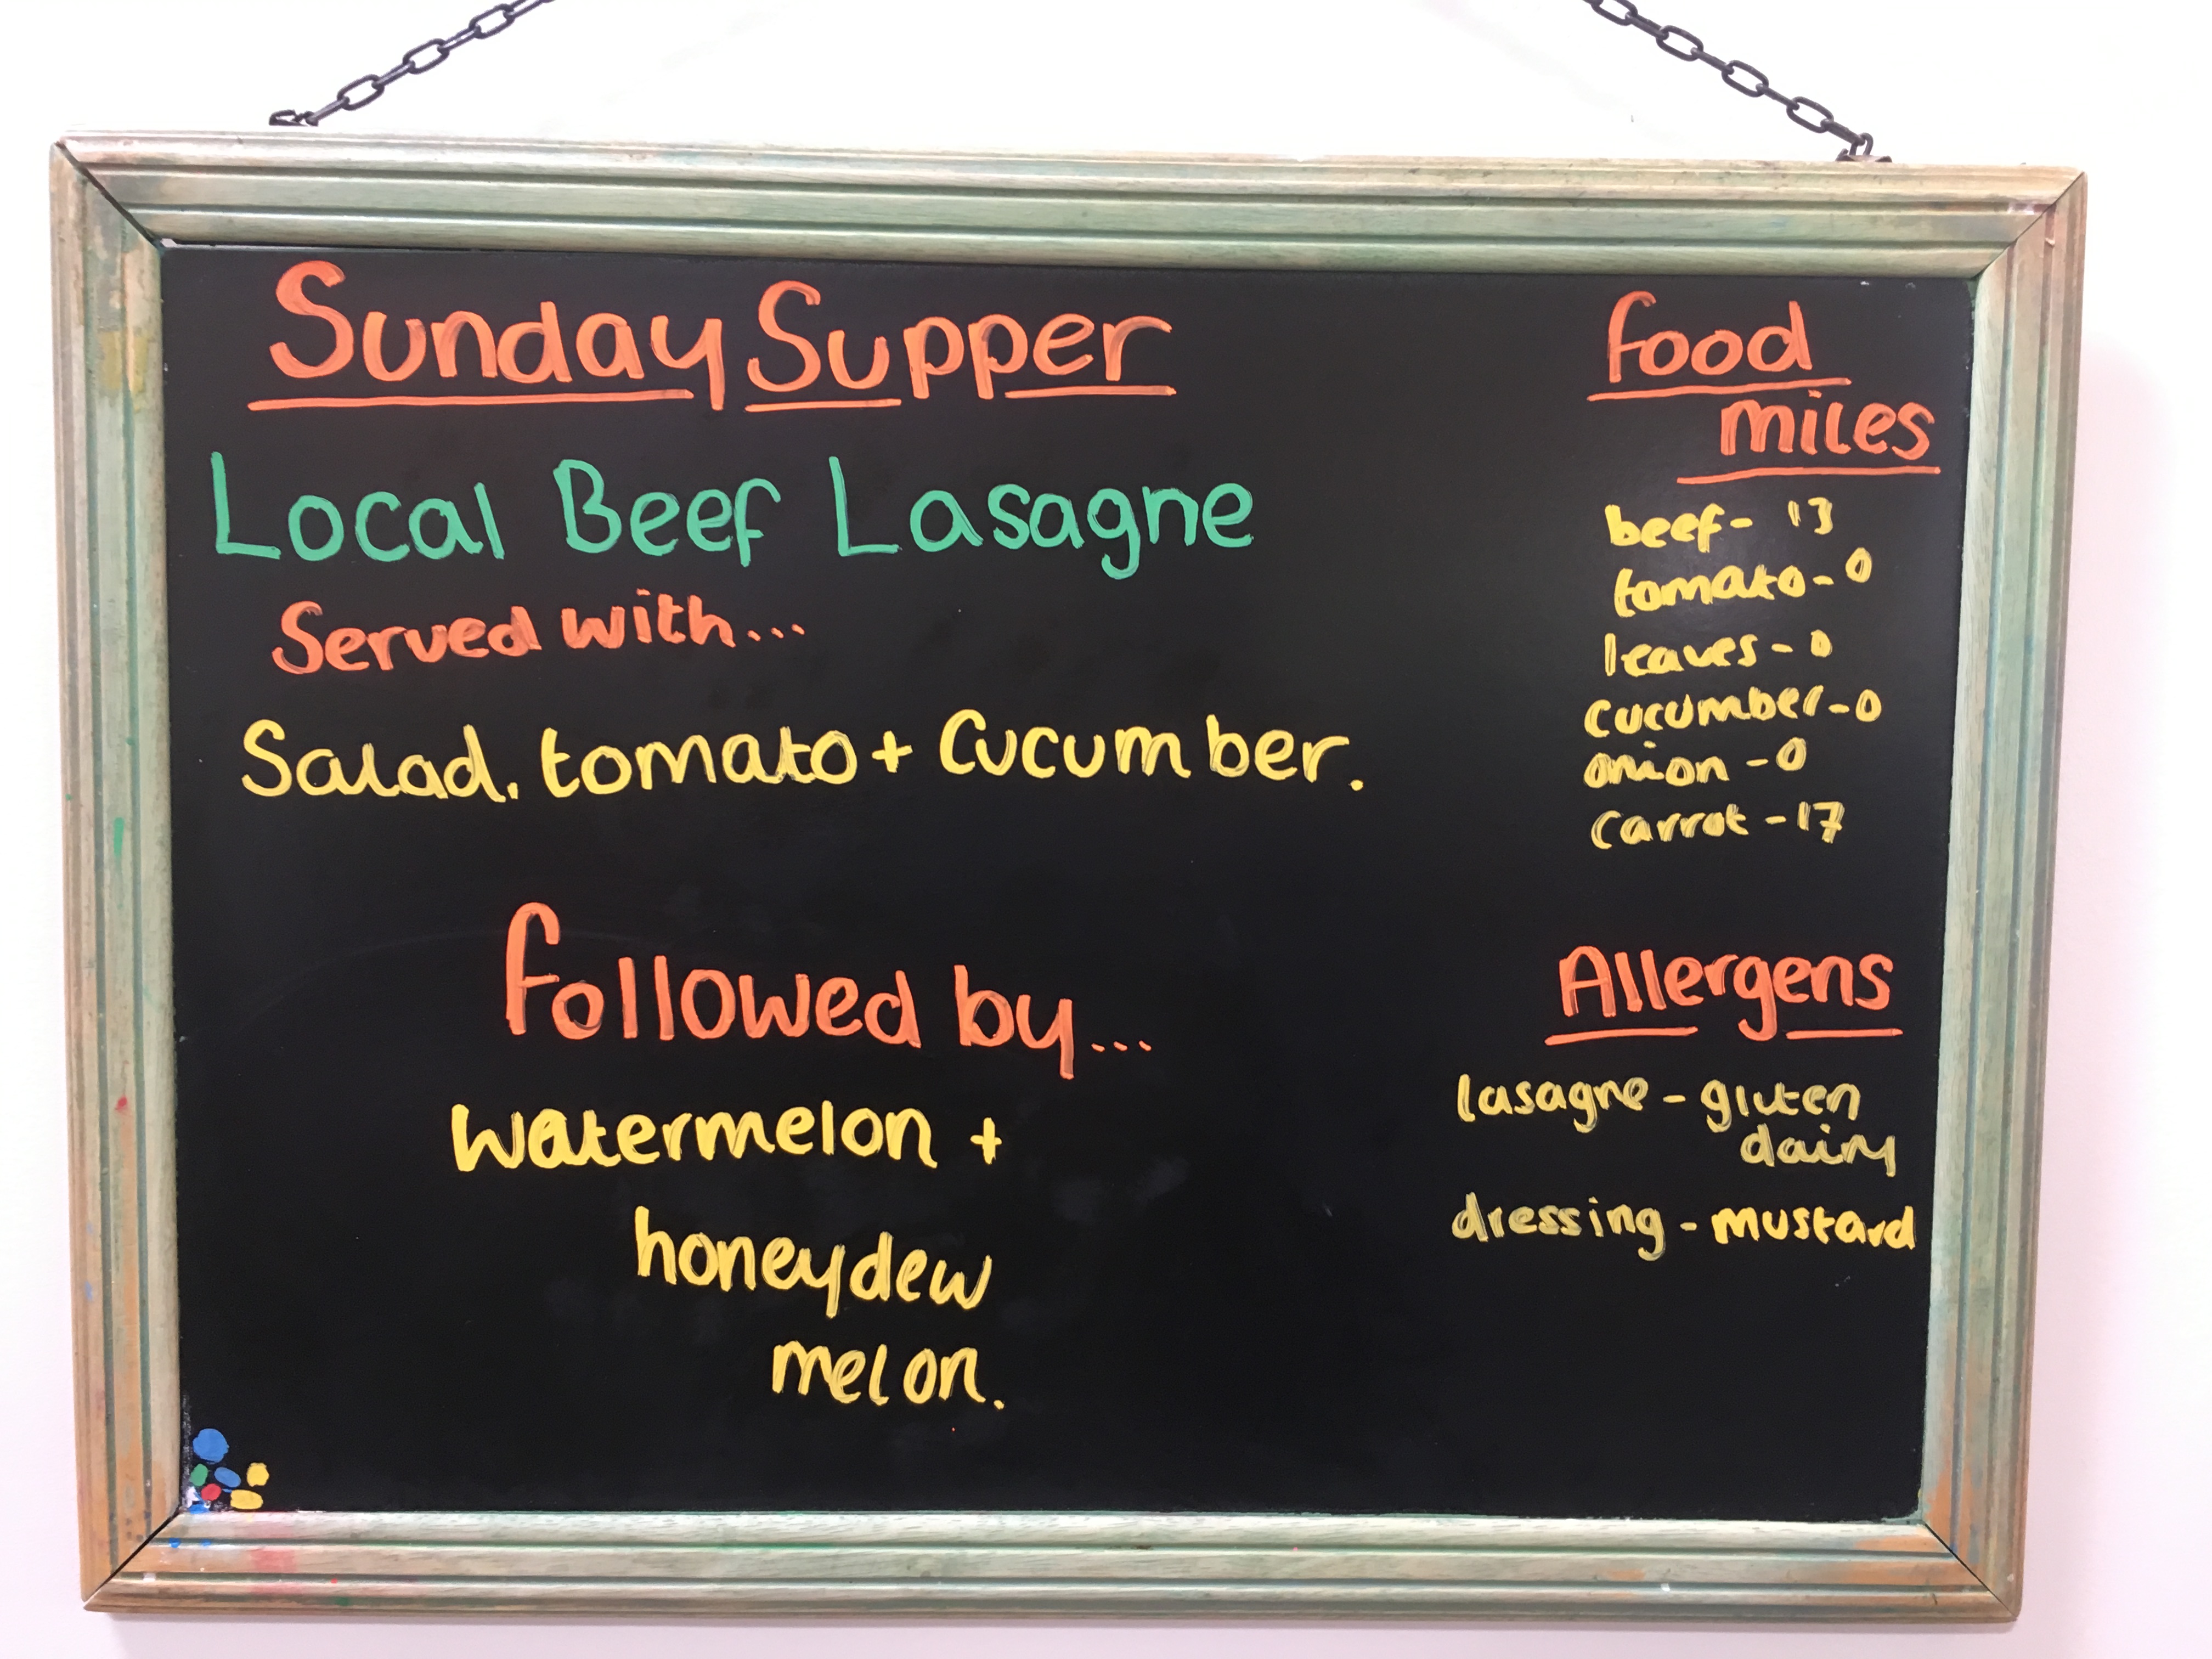 Sunday Supper
Local Beef Lasagne
Served with...
Salad, tomato + Cucumber.
followed by...
Watermelon +
honeydew
melon.
food
miles
beef - 13
tomato - 0
leaves - 0
cucumber - 0
onion - 0
carrot - 17
Allergens
lasagne - gluten
dairy
dressing - mustard